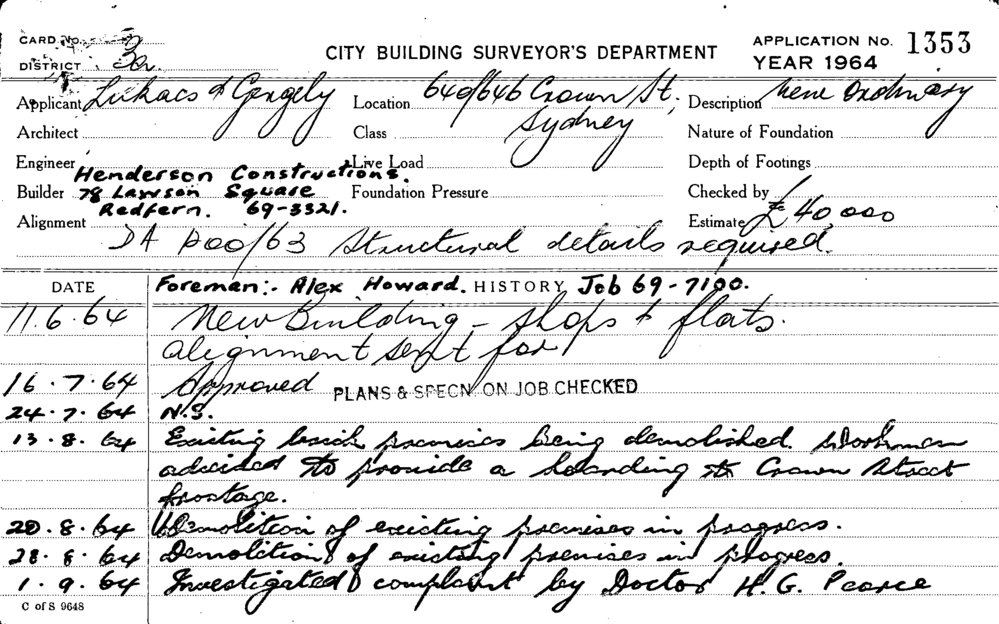 CARD No. 2
CITY BUILDING SURVEYOR'S DEPARTMENT
APPLICATION No. 1353
DISTRICT 3a.
YEAR 1964
Applicant Lukacs & Gergely Location 640/646 Crown St, Description New Ordinary
Architect Class Sydney Nature of Foundation
Engineer Live Load Depth of Footings
Henderson Constructions.
Builder 78 Lawson Square Foundation Pressure Checked by
Redfern. 69-3321. Estimate £40,000
Alignment
DA /63 Structural details required.
DATE Foreman:- Alex Howard. HISTORY Job 69-7100.
11.6.64 New Building - shops & flats.
Alignment sent for
16.7.64 Approved PLANS & SPECN. ON JOB CHECKED
24.7.64 N.S.
13.8.64 Existing brick premises being demolished. Workmen
advised to provide a hoarding to Crown Street
frontage.
20.8.64 Demolition of existing premises in progress.
28.8.64 Demolition of existing premises in progress.
1.9.64 Investigated complaint by Doctor H.G. Pearce
C of S 9648